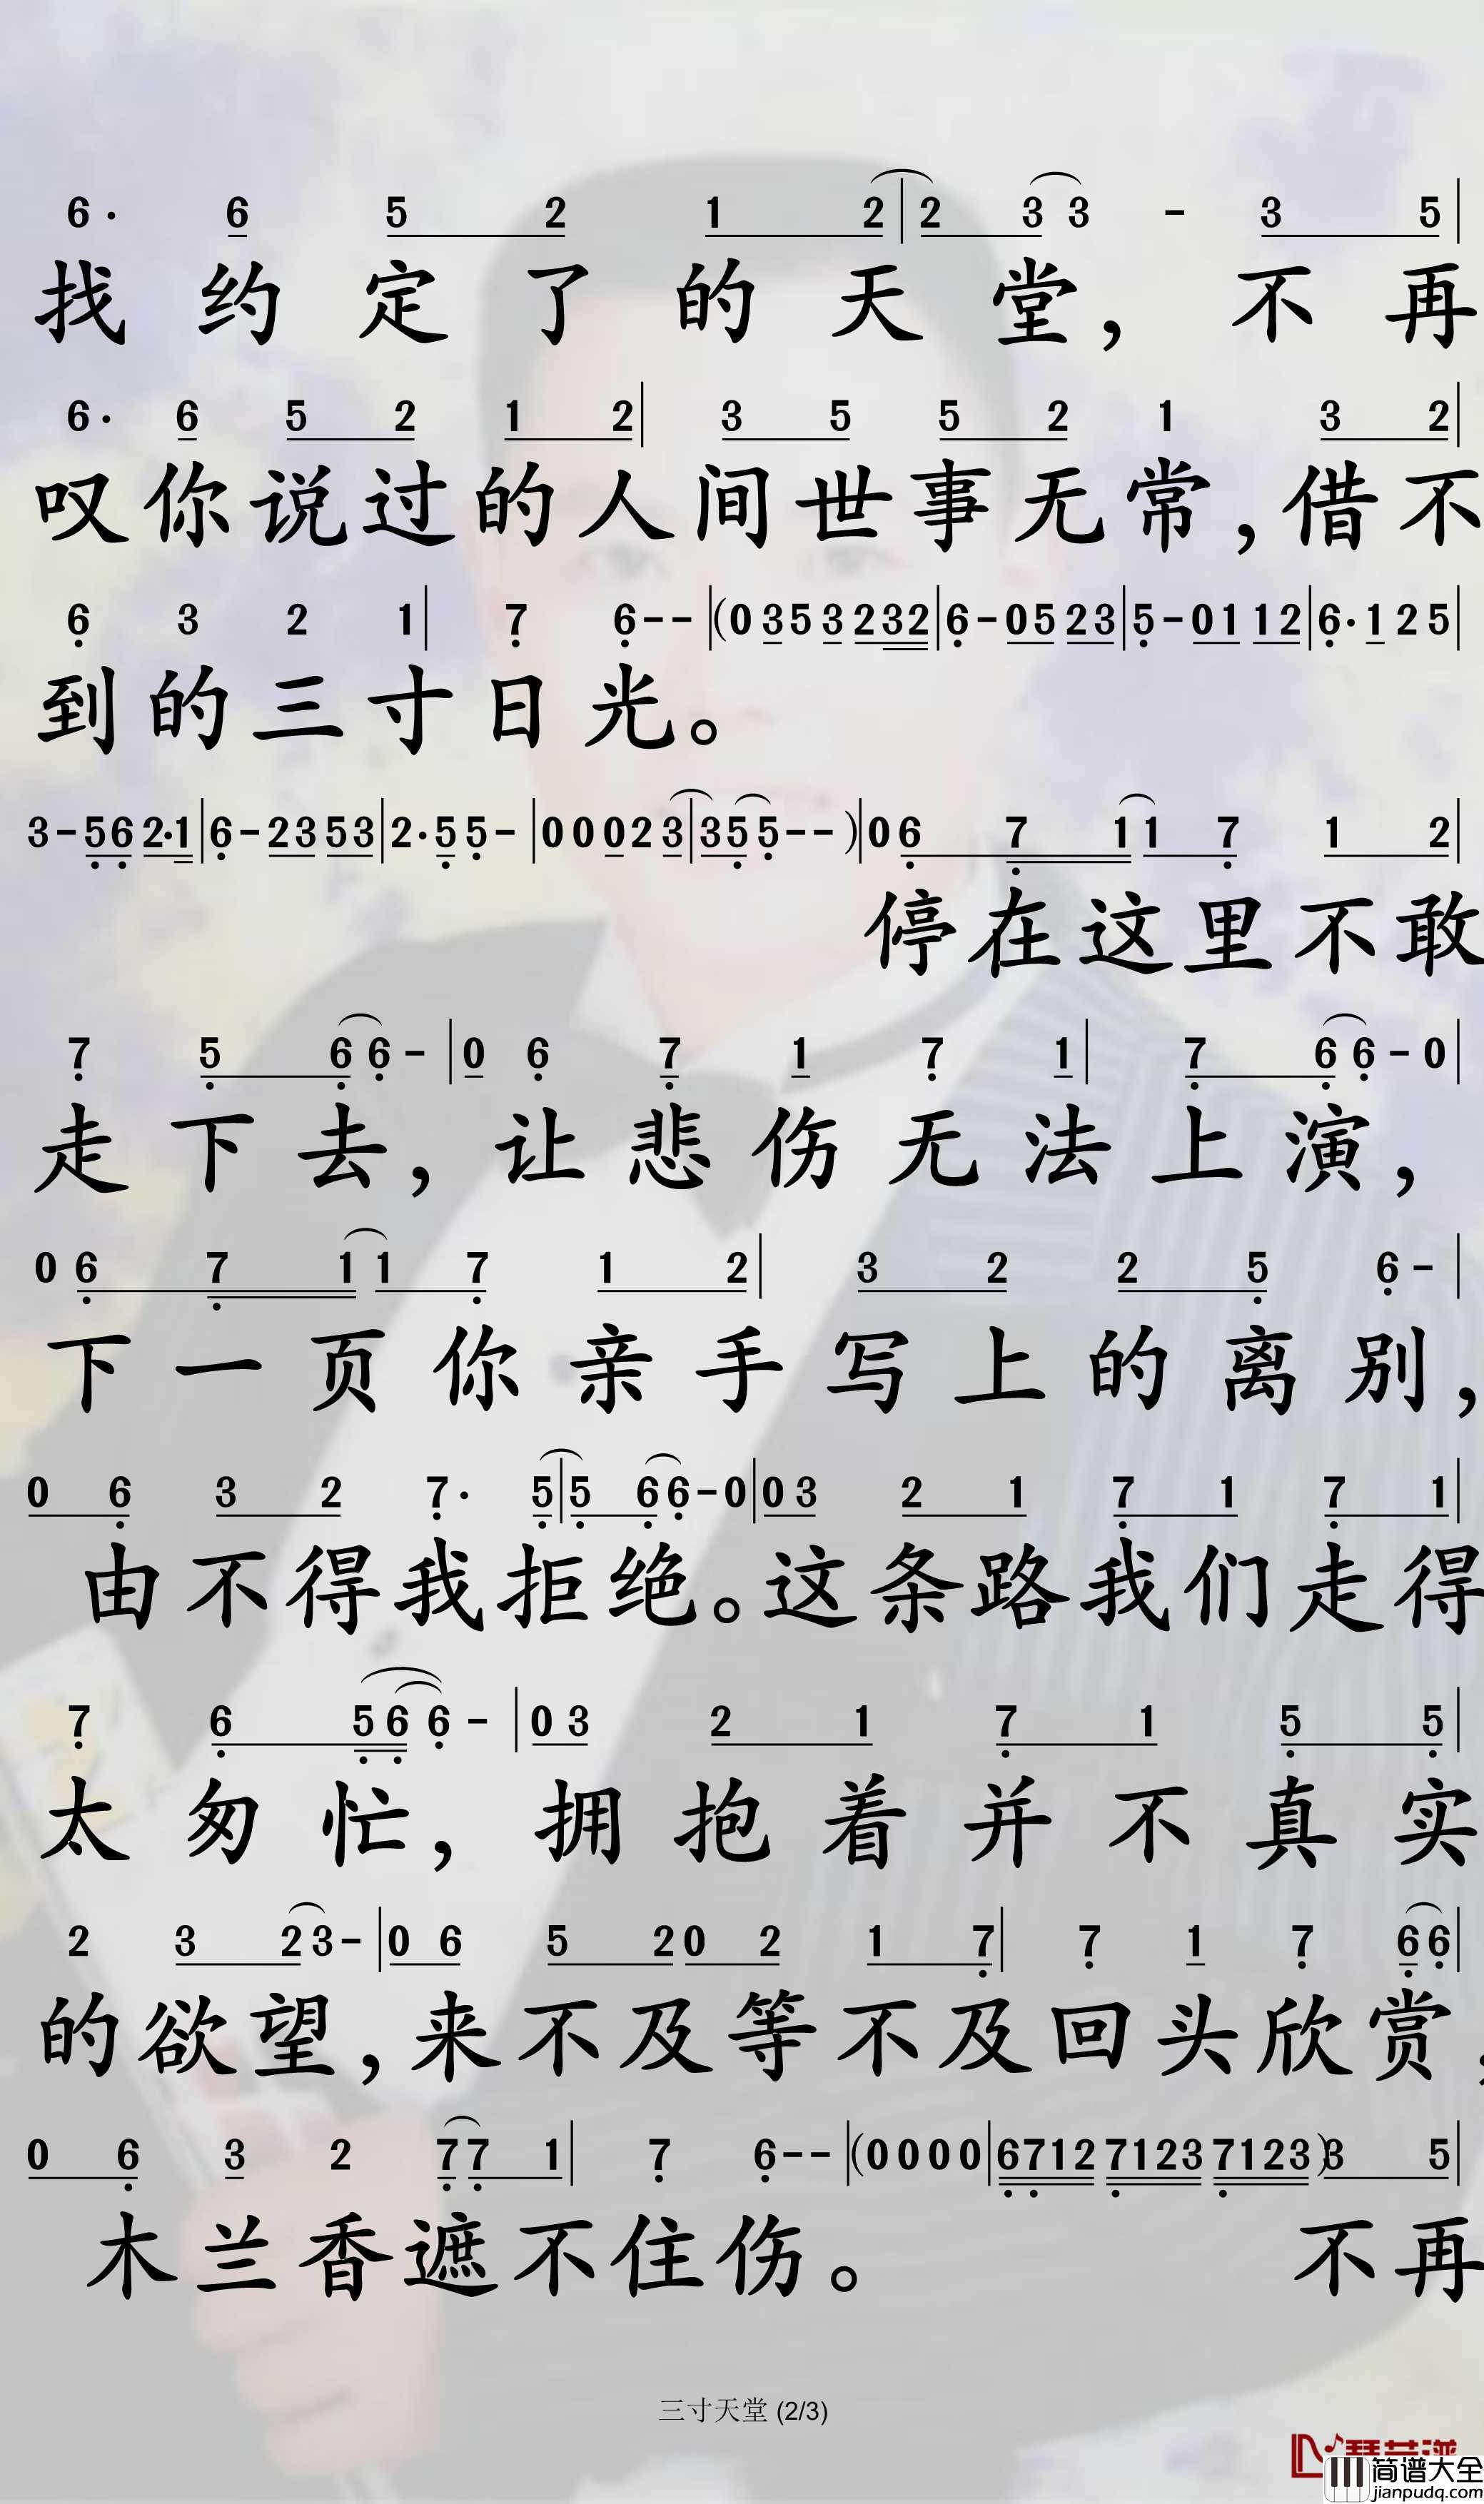 6· 6 5 2 1 2|2 3 3 - 3 5|
找约定了的天堂，不再
6· 6 5 2 1 2| 3 5 5 2 1 3 2|
叹你说过的人间世事无常，借不
6 3 2 1| 7 6--|(0 3 5 3 2 3 2|6-0 5 2 3|5-0 1 1 2|6·1 2 5|
到的三寸日光。
3-5 6 2·1|6-2 3 5 3|2·5 5-|0 0 0 2 3|3 5 5--)|0 6 7 1 1 7 1 2|
停在这里不敢
7 5 6 6-|0 6 7 1 7 1| 7 6 6-0|
走下去，让悲伤无法上演，
0 6 7 1 1 7 1 2| 3 2 2 5 6-|
下一页你亲手写上的离别，
0 6 3 2 7· 5|5 6 6-0|0 3 2 1 7 1 7 1|
由不得我拒绝。这条路我们走得
7 6 5 6 6-|0 3 2 1 7 1 5 5|
太匆忙，拥抱着并不真实
2 3 2 3-|0 6 5 2 0 2 1 7| 7 1 7 6 6|
的欲望，来不及等不及回头欣赏，
0 6 3 2 7 7 1| 7 6--|(0 0 0 0|6 7 1 2 7 1 2 3 7 1 2 3)3 5|
木兰香遮不住伤。不再
三寸天堂 (2/3)
简谱大全
jianpudq.com